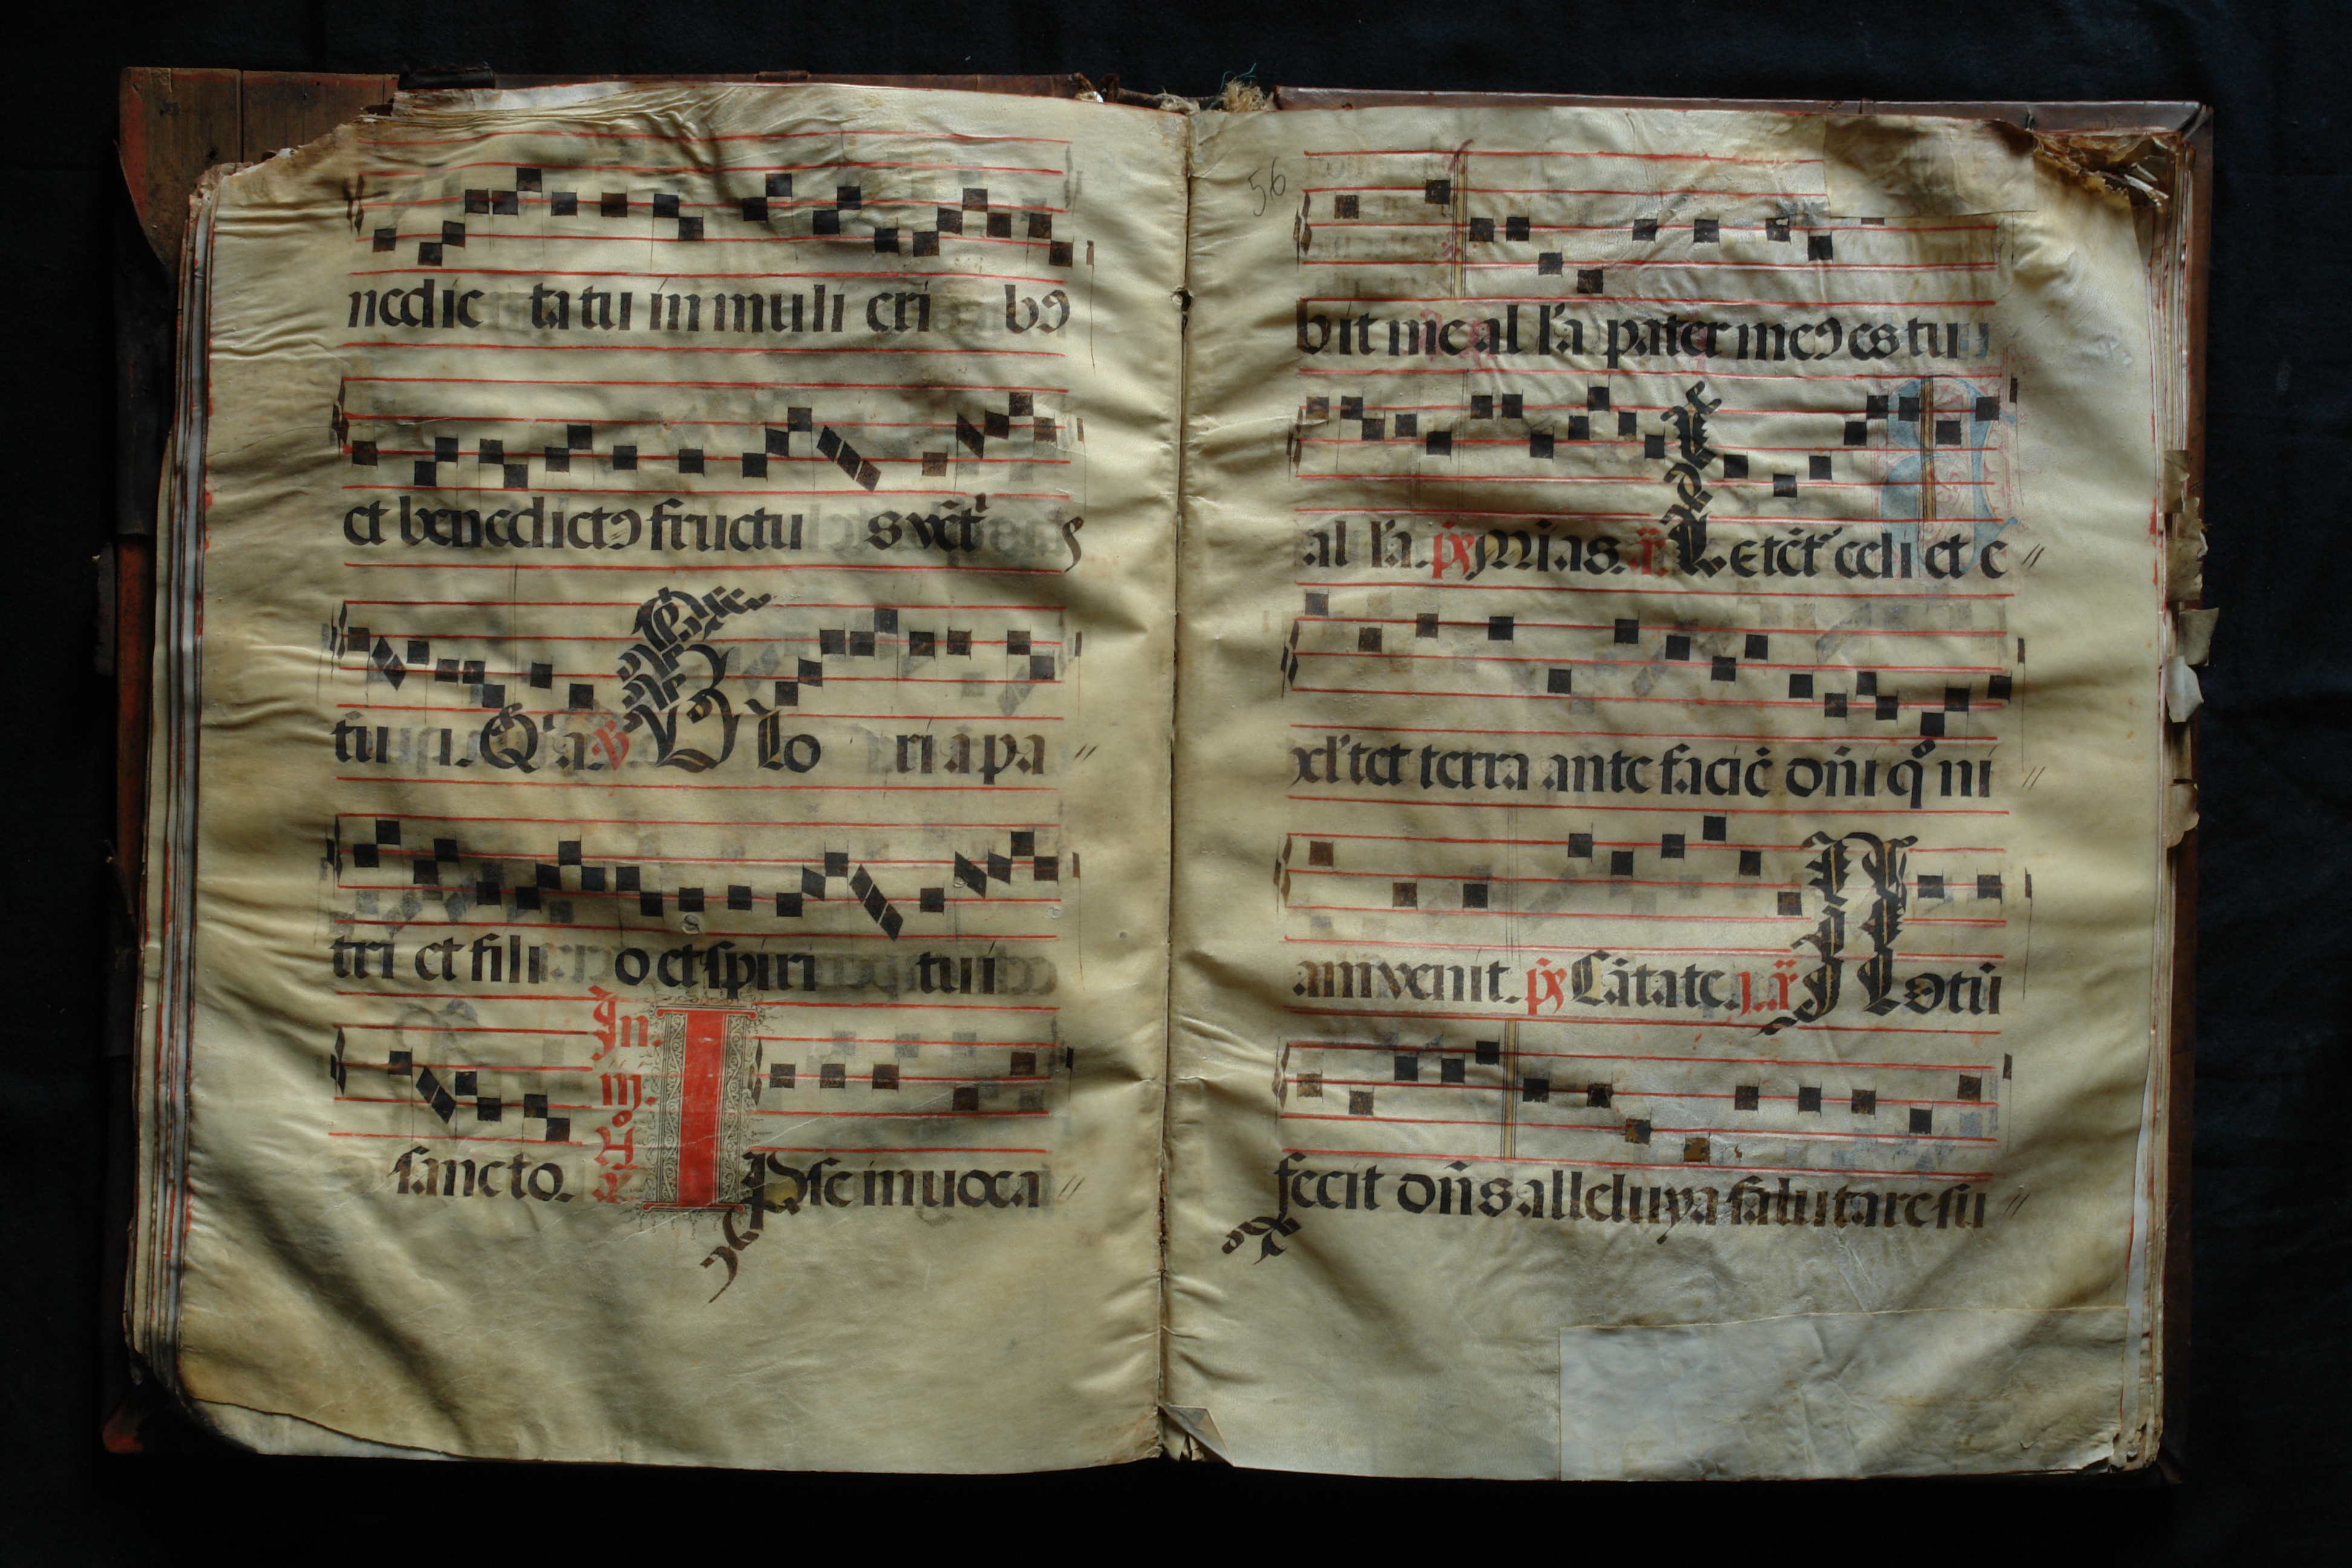 nedic ta tu in muli eri bꝯ
et benedictꝯ fructu s vẽt
tu i. Q'a V Glo ri a pa
tri et fili o et spiri tui
sancto. In m. ã Ipse inuoca
56
bit me al l'a pater meꝯ es tu
al l'a. p̃s Mĩas. ã Letẽt' celi et e
xl'tet terra ante faciẽ dñi qº ni
am venit. p̃s Cãtate. j. ã Notũ
fecit dñs alleluya salutare su